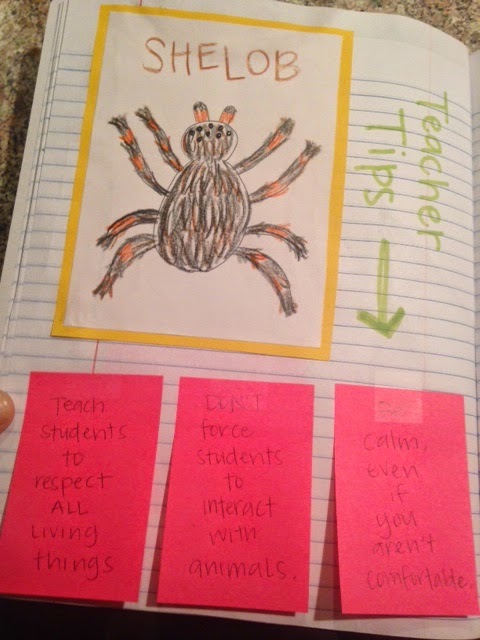 SHELOB
Teacher
Tips
Teach
students
to
respect
ALL
living
things
DON'T
force
students
to
interact
with
animals.
calm,
even
if
you
aren't
comfortable.